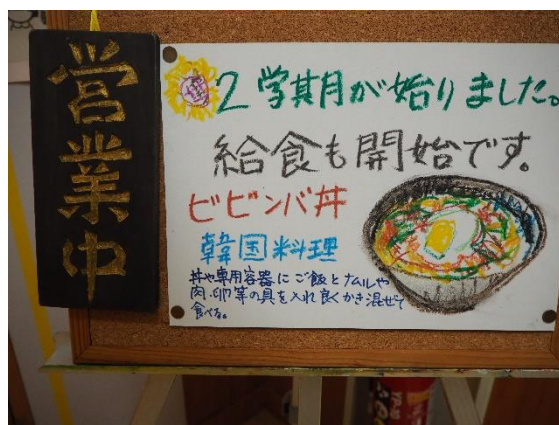 営業中
2学期が始りました。
給食も開始です。
ビビンバ丼
韓国料理
丼や専用容器にご飯とナムルや
肉、卵等の具を入れ良くかき混ぜて
食べる。